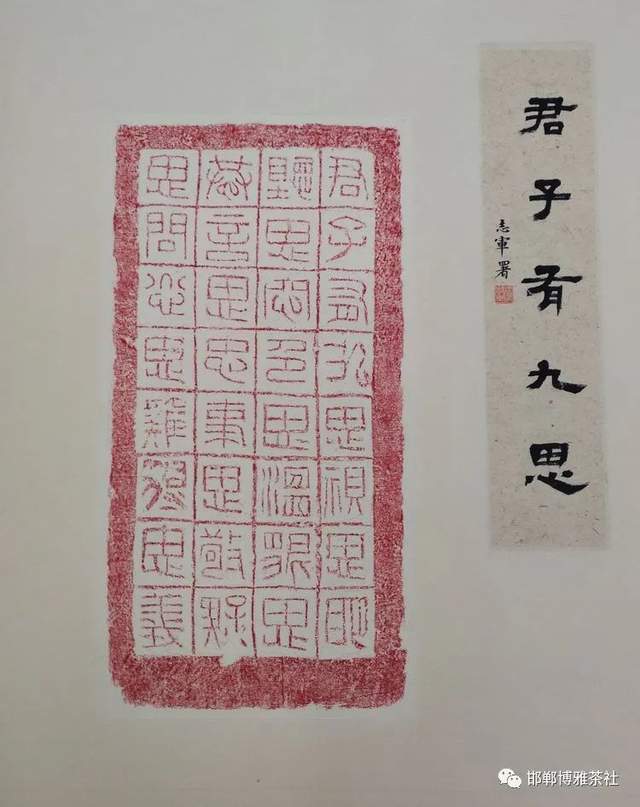 君子有九思
志軍署
君子有九思視思明
聽思聰色思溫貌思
恭言思忠事思敬疑
思問忿思難得思義
邯郸博雅茶社